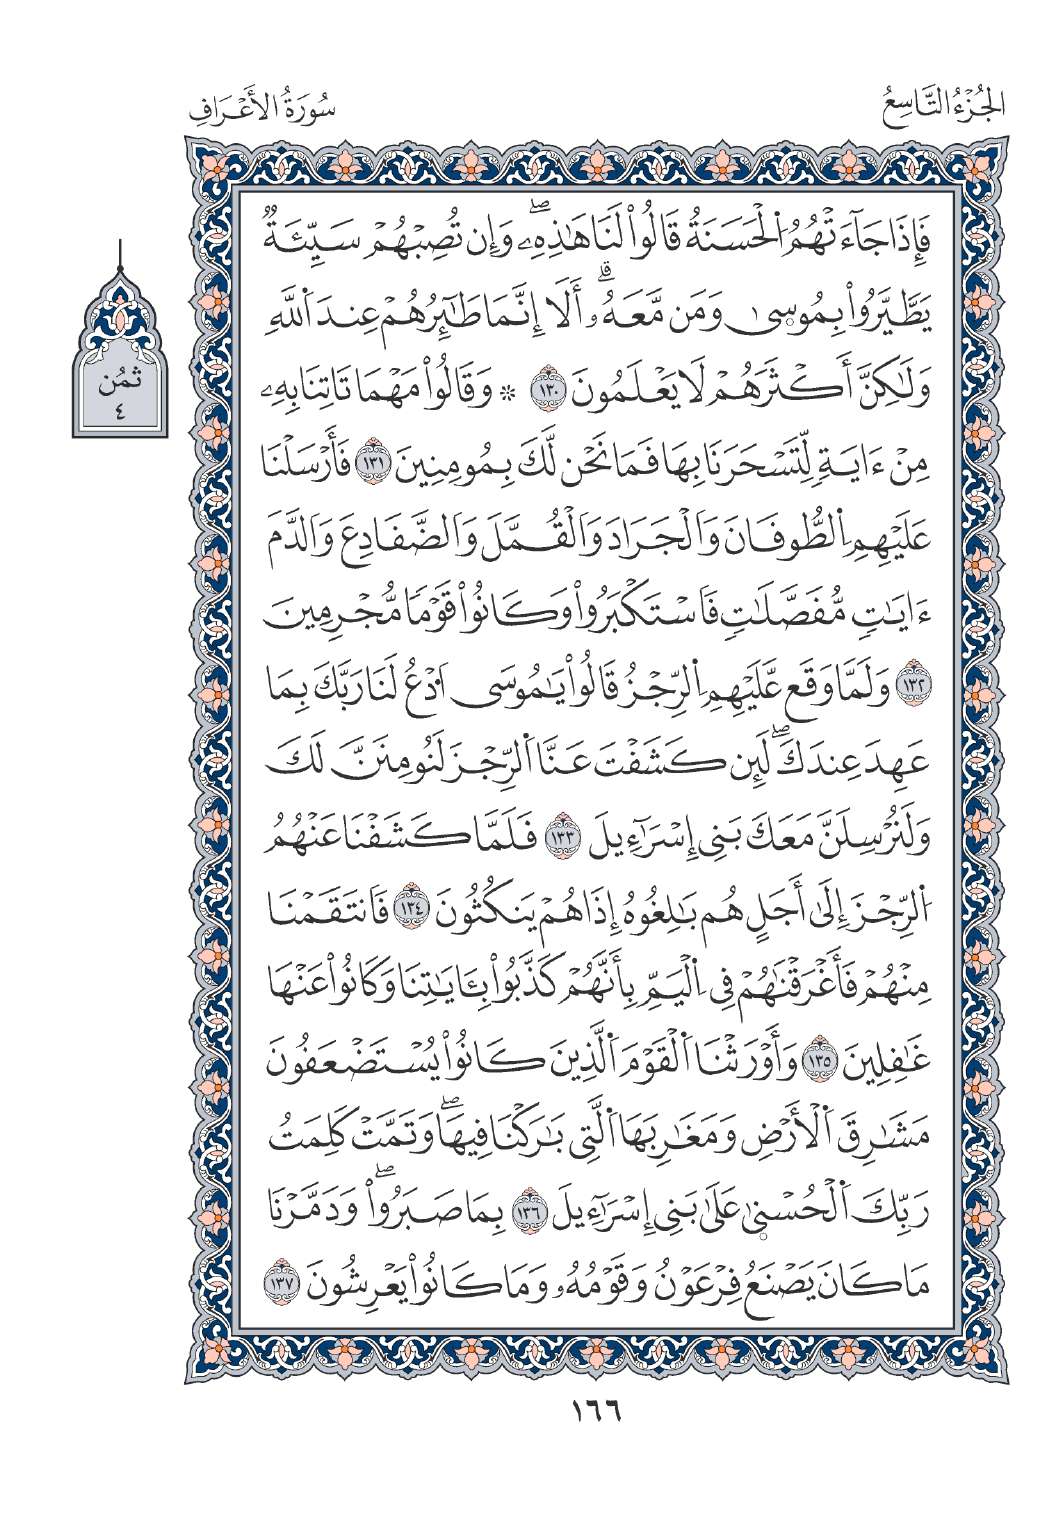 الجُزْءُ التَّاسِعُ
سُورَةُ الأَعْرَافِ
فَإِذَا جَآءَتْهُمُ اُ۬لْحَسَنَةُ قَالُواْ لَنَا هَٰذِهِۦۖ وَإِن تُصِبْهُمْ سَيِّئَةٞ
يَطَّيَّرُواْ بِمُوس۪ىٰ وَمَن مَّعَهُۥٓۗ أَلَآ إِنَّمَا طَٰٓئِرُهُمْ عِندَ اَ۬للَّهِ
وَلَٰكِنَّ أَكْثَرَهُمْ لَا يَعْلَمُونَ ١٣٠ ۞ وَقَالُواْ مَهْمَا تَاتِنَا بِهِۦ
مِنْ ءَايَةٖ لِّتَسْحَرَنَا بِهَا فَمَا نَحْن لَّكَ بِمُومِنِينَ ١٣١ فَأَرْسَلْنَا
عَلَيْهِمِ اِ۬لطُّوفَانَ وَالْجَرَادَ وَالْقُمَّلَ وَالضَّفَادِعَ وَالدَّمَ
ءَايَٰتٖ مُّفَصَّلَٰتٖ فَاسْتَكْبَرُواْ وَكَانُواْ قَوْمٗا مُّجْرِمِينَ
١٣٢ وَلَمَّا وَقَع عَّلَيْهِمِ اِ۬لرِّجْزُ قَالُواْ يَٰمُوسَى اَ۟دْعُ لَنَا رَبَّكَ بِمَا
عَهِدَ عِندَكَۖ لَئِن كَشَفْتَ عَنَّا اَ۬لرِّجْزَ لَنُومِنَنَّ لَكَ
وَلَنُرْسِلَنَّ مَعَكَ بَنِيٓ إِسْرَآءِيلَ ١٣٣ فَلَمَّا كَشَفْنَا عَنْهُمُ
اُ۬لرِّجْزَ إِلَىٰٓ أَجَلٍ هُم بَٰلِغُوهُ إِذَا هُمْ يَنكُثُونَ ١٣٤ فَانتَقَمْنَا
مِنْهُمْ فَأَغْرَقْنَٰهُمْ فِي اِ۬لْيَمِّ بِأَنَّهُمْ كَذَّبُواْ بِـَٔايَٰتِنَا وَكَانُواْ عَنْهَا
غَٰفِلِينَ ١٣٥ وَأَوْرَثْنَا اَ۬لْقَوْمَ اَ۬لَّذِينَ كَانُواْ يُسْتَضْعَفُونَ
مَشَٰرِقَ اَ۬لْأَرْضِ وَمَغَٰرِبَهَا اَ۬لَّتِي بَٰرَكْنَا فِيهَاۖ وَتَمَّتْ كَلِمَتُ
رَبِّكَ اَ۬لْحُسْن۪ىٰ عَلَىٰ بَنِيٓ إِسْرَآءِيلَ ١٣٦ بِمَا صَبَرُواْۖ وَدَمَّرْنَا
مَا كَانَ يَصْنَعُ فِرْعَوْنُ وَقَوْمُهُۥ وَمَا كَانُواْ يَعْرِشُونَ ١٣٧
ثمُن
٤
١٦٦